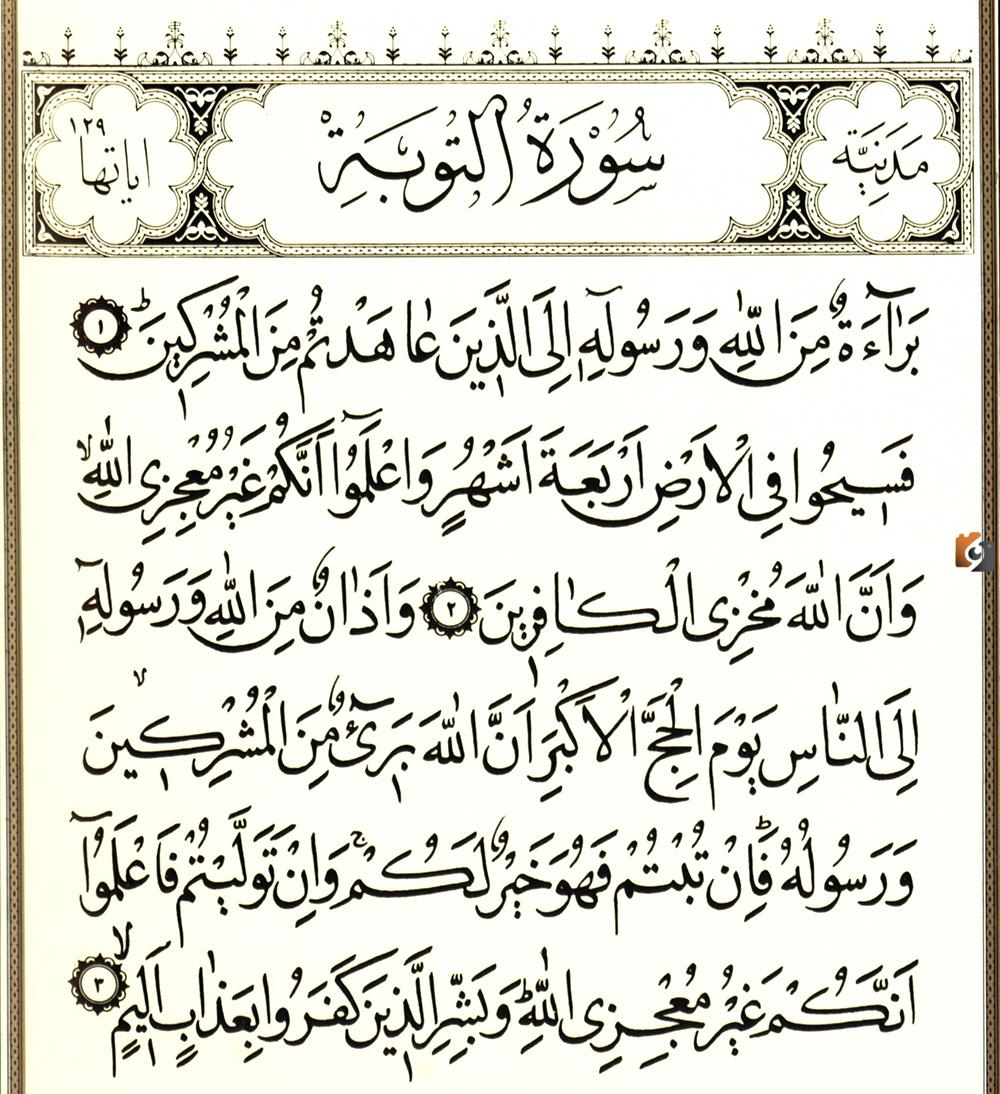 مَدَنِيَّة
سُورَةُ التَّوْبَةِ
اياتها ١٢٩
بَرَآءَةٌ مِنَ اللّٰهِ وَرَسُولِهِٓ اِلَى الَّذِينَ عَاهَدْتُمْ مِنَ الْمُشْرِكِينَ ۜ ١
فَسِيحُوا فِي الْاَرْضِ اَرْبَعَةَ اَشْهُرٍ وَاعْلَمُٓوا اَنَّكُمْ غَيْرُ مُعْجِزِي اللّٰهِ ۙ
وَاَنَّ اللّٰهَ مُخْزِي الْكَافِرِينَ ٢ وَاَذَانٌ مِنَ اللّٰهِ وَرَسُولِهِٓ
اِلَى النَّاسِ يَوْمَ الْحَجِّ الْاَكْبَرِ اَنَّ اللّٰهَ بَرِٓيءٌ مِنَ الْمُشْرِكِينَ ۙ
وَرَسُولُهُ ۜ فَاِنْ تُبْتُمْ فَهُوَ خَيْرٌ لَكُمْ ۚ وَاِنْ تَوَلَّيْتُمْ فَاعْلَمُٓوا
اَنَّكُمْ غَيْرُ مُعْجِزِي اللّٰهِ ۜ وَبَشِّرِ الَّذِينَ كَفَرُوا بِعَذَابٍ اَلِيمٍ ۙ ٣